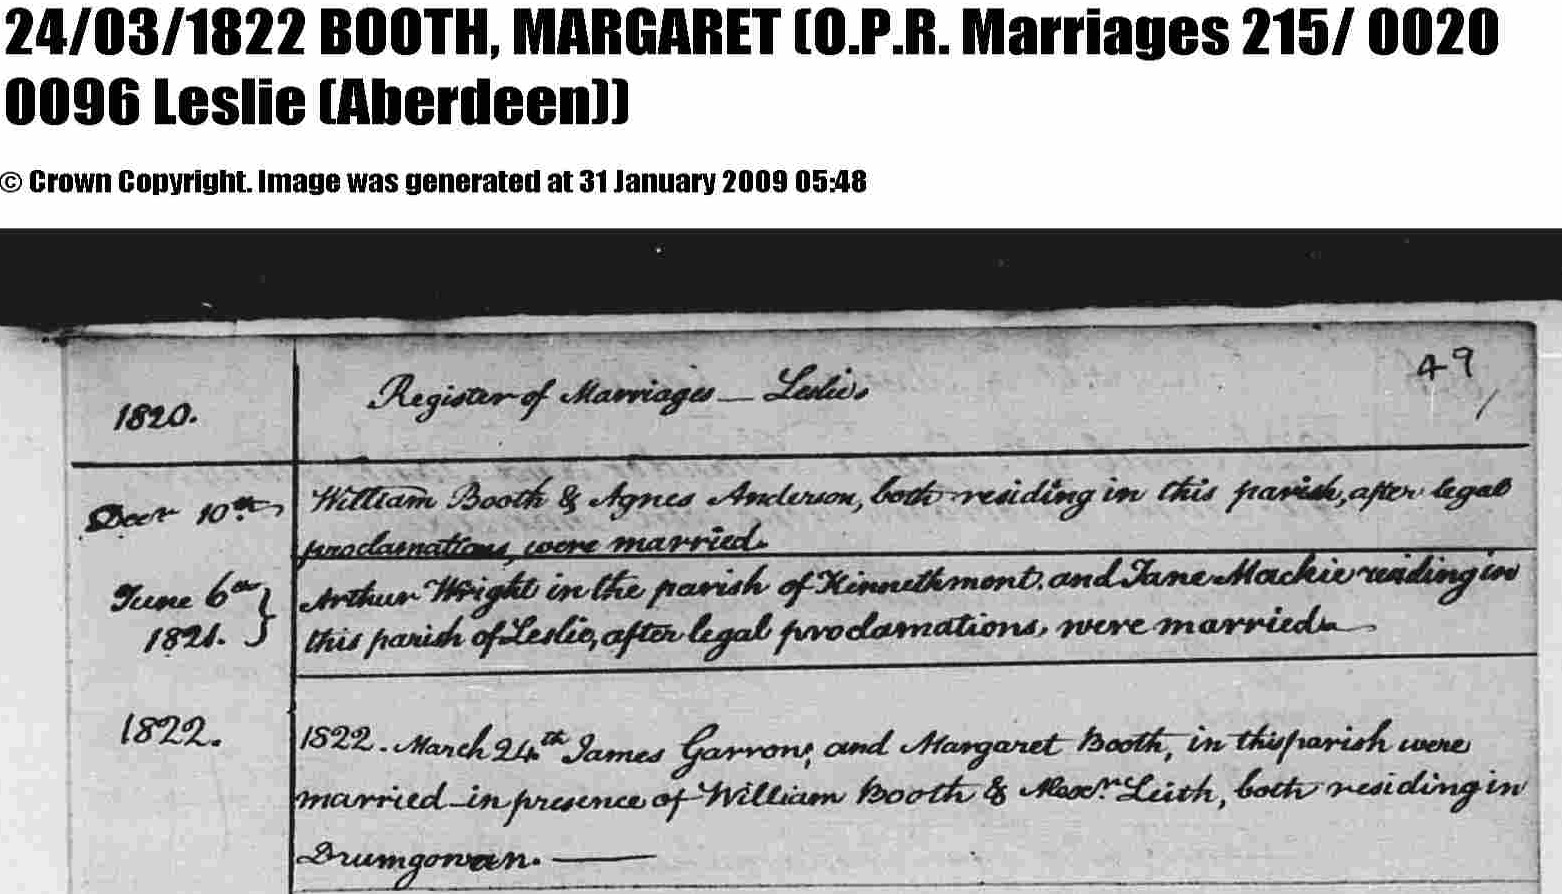 24/03/1822 BOOTH, MARGARET (O.P.R. Marriages 215/ 0020
0096 Leslie (Aberdeen))
© Crown Copyright. Image was generated at 31 January 2009 05:48
49
1820. Register of Marriages — Leslie.
Decr 10th William Booth & Agnes Anderson, both residing in this parish, after legal
proclamations, were married.
June 6th Arthur Wright in the parish of Kinnethmont, and Jane Mackie residing in
1821. this parish of Leslie, after legal proclamations, were married.
1822. 1822. March 24th James Garron, and Margaret Booth, in this parish were
married in presence of William Booth & Alexr. Leith, both residing in
Drumgowan. —